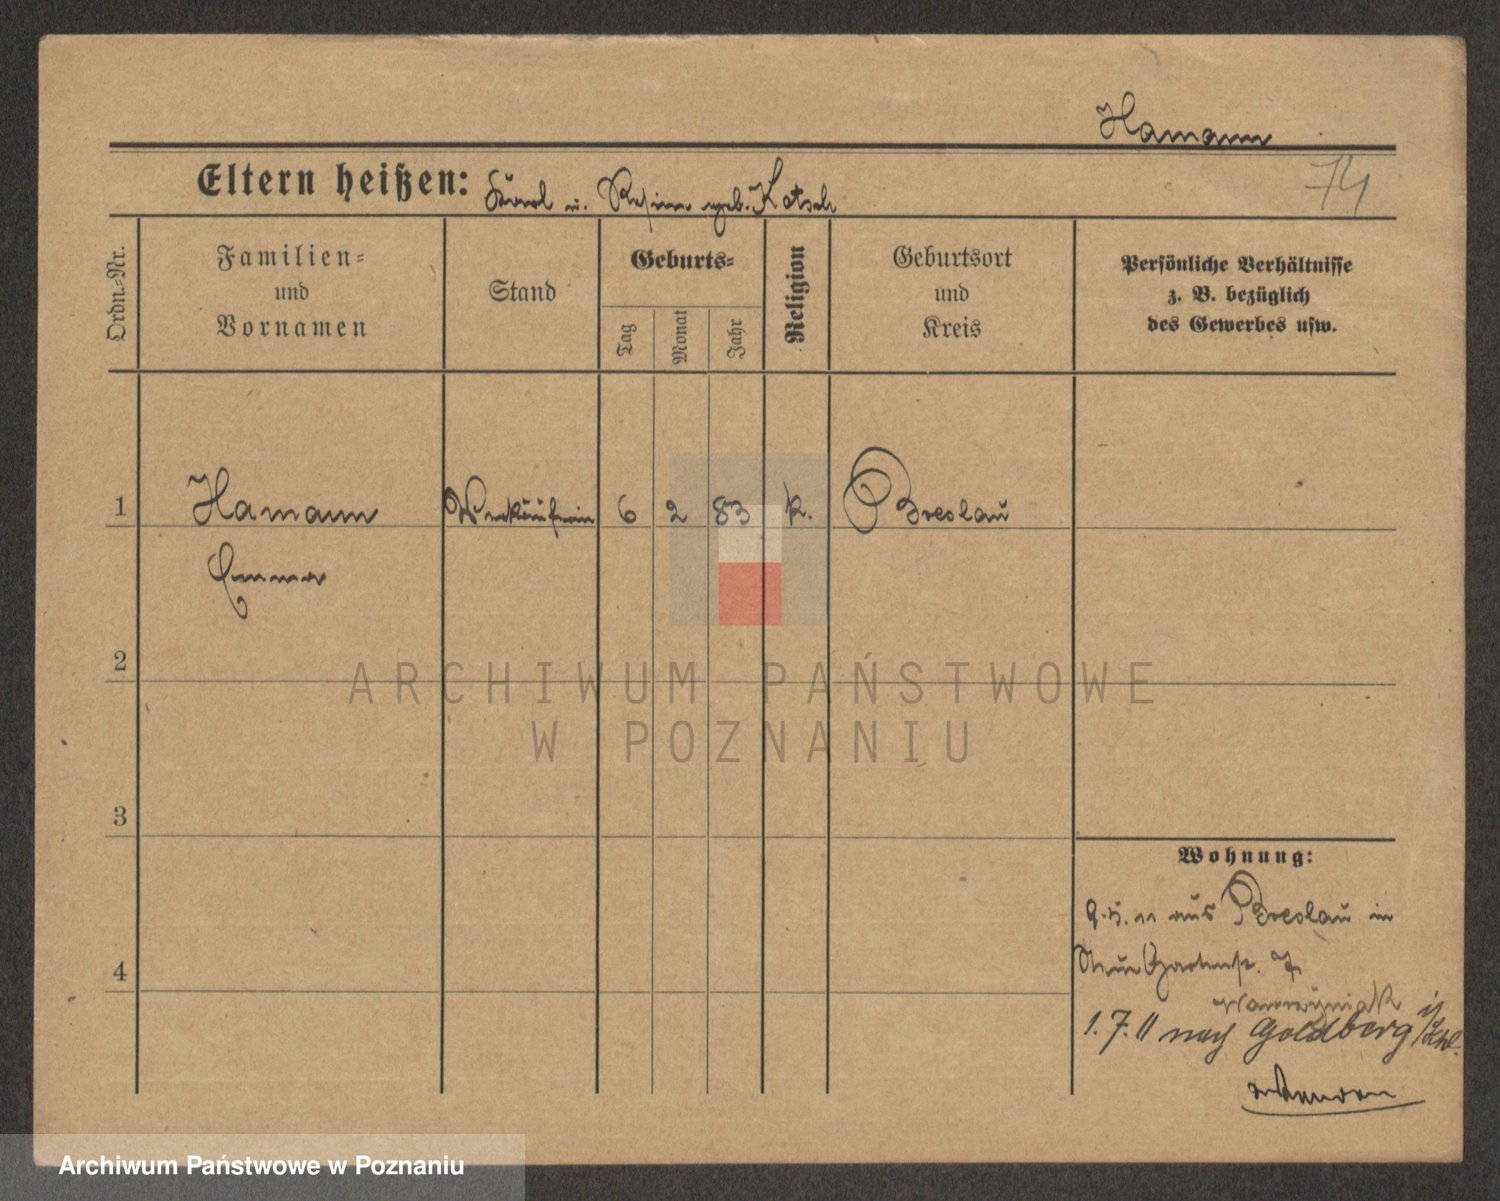 Hamann
Eltern heißen: Karl u. Rosina geb. Kotsch
74
Ordn.-Nr.
Familien-
und
Vornamen
Stand
Geburts-
Tag
Monat
Jahr
Religion
Geburtsort
und
Kreis
Persönliche Verhältnisse
z. B. bezüglich
des Gewerbes usw.
1
Hamann
Verkäuferin
6
2
83
k.
Breslau
Emma
2
ARCHIWUM PAŃSTWOWE
W POZNANIU
3
Wohnung:
aus Breslau in
Neue Gartenstr. 7
Wawrzyniak
4
1.7.11 nach Goldberg i/Schl.
Archiwum Państwowe w Poznaniu